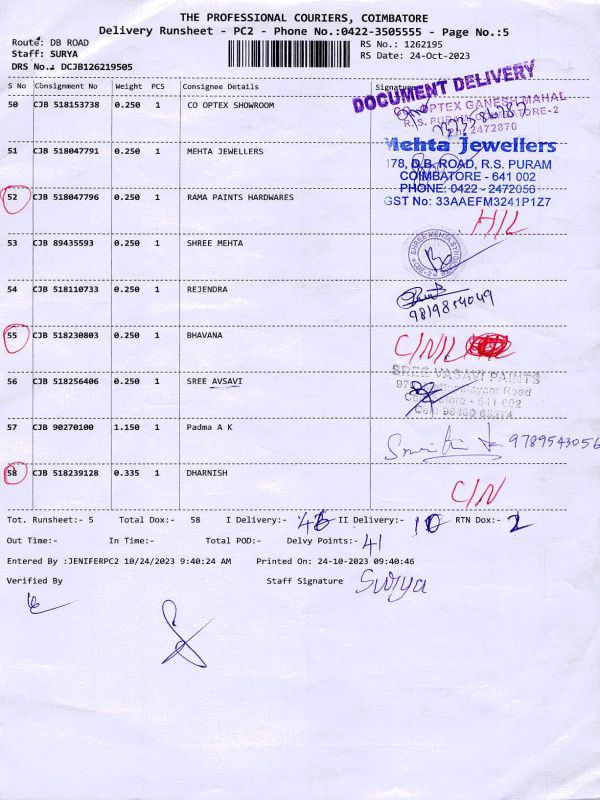 THE PROFESSIONAL COURIERS, COIMBATORE
Delivery Runsheet - PC2 - Phone No.:0422-3505555 - Page No.:5
Route: DB ROAD
RS No.: 1262195
Staff: SURYA
RS Date: 24-Oct-2023
DRS No.: DCJB126219505
S No Consignment No Weight PCS Consignee Details Signature
DOCUMENT DELIVERY
50 CJB 518153738 0.250 1 CO OPTEX SHOWROOM
CO OPTEX GANESH MAHAL
R.S. PURAM, COIMBATORE-2
2472870
51 CJB 518047791 0.250 1 MEHTA JEWELLERS
Mehta Jewellers
178, D.B. ROAD, R.S. PURAM
COIMBATORE - 641 002
PHONE: 0422 - 2472056
GST No: 33AAEFM3241P1Z7
52 CJB 518047796 0.250 1 RAMA PAINTS HARDWARES
H/L
53 CJB 89435593 0.250 1 SHREE MEHTA
54 CJB 518110733 0.250 1 REJENDRA
9819854049
55 CJB 518230803 0.250 1 BHAVANA
C/N/L
56 CJB 518256406 0.250 1 SREE AVSAVI
SREE VASAVI PAINTS
Road
Coimbatore - 641 002
57 CJB 90270100 1.150 1 Padma A K
9789543056
58 CJB 518239128 0.335 1 DHARNISH
C/N
Tot. Runsheet:- 5 Total Dox:- 58 I Delivery:- 46 II Delivery:- 10 RTN Dox:- 2
Out Time:- In Time:- Total POD:- Delvy Points:- 41
Entered By :JENIFERPC2 10/24/2023 9:40:24 AM Printed On: 24-10-2023 09:40:46
Verified By Staff Signature Surya